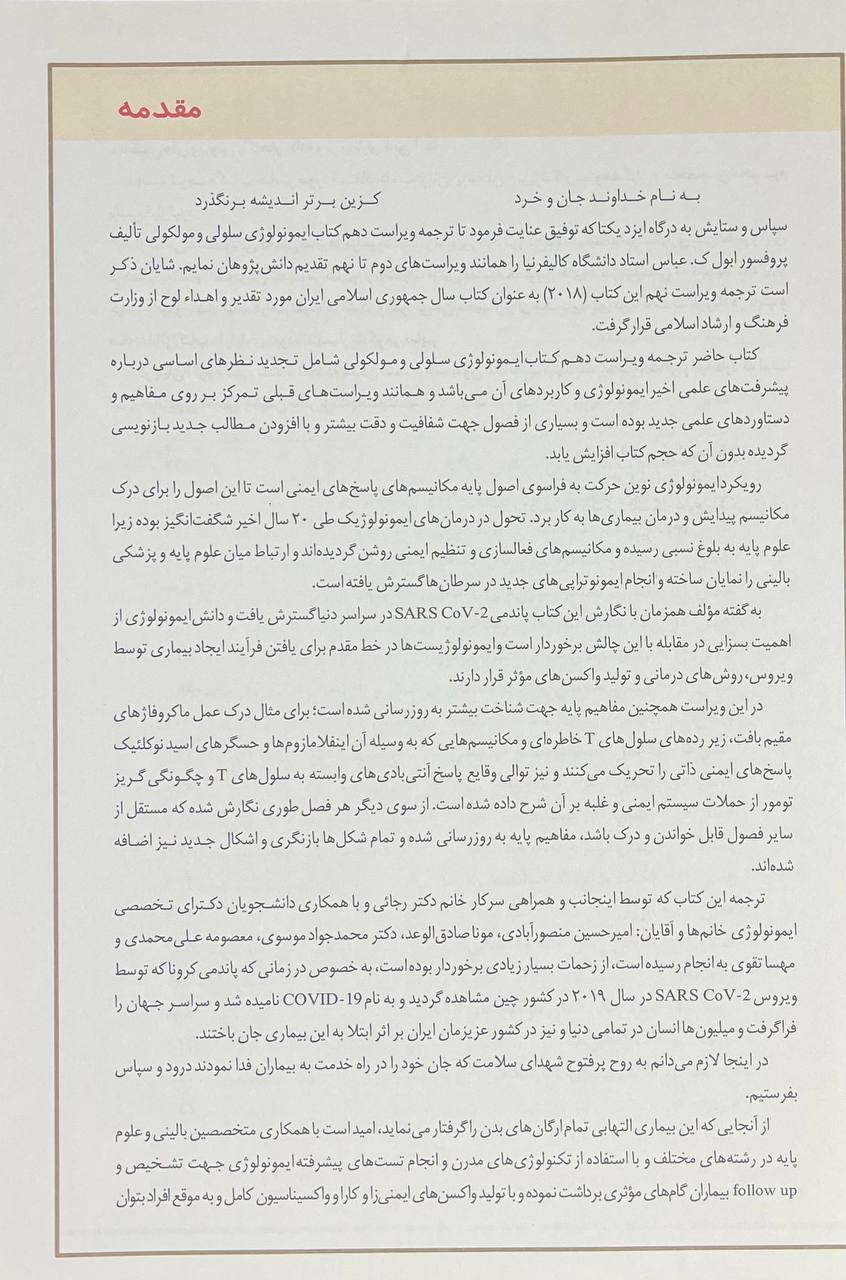 مقدمه
به نام خداوند جان و خرد کزین برتر اندیشه برنگذرد
سپاس و ستایش به درگاه ایزد یکتا که توفیق عنایت فرمود تا ترجمه ویراست دهم کتاب ایمونولوژی سلولی و مولکولی تألیف
پروفسور ابول ک. عباس استاد دانشگاه کالیفرنیا را همانند ویراست‌های دوم تا نهم تقدیم دانش‌پژوهان نمایم. شایان ذکر
است ترجمه ویراست نهم این کتاب (۲۰۱۸) به عنوان کتاب سال جمهوری اسلامی ایران مورد تقدیر و اهداء لوح از وزارت
فرهنگ و ارشاد اسلامی قرار گرفت.
کتاب حاضر ترجمه ویراست دهم کتاب ایمونولوژی سلولی و مولکولی شامل تجدید نظرهای اساسی درباره
پیشرفت‌های علمی اخیر ایمونولوژی و کاربردهای آن می‌باشد و همانند ویراست‌های قبلی تمرکز بر روی مفاهیم و
دستاوردهای علمی جدید بوده است و بسیاری از فصول جهت شفافیت و دقت بیشتر و با افزودن مطالب جدید بازنویسی
گردیده بدون آن که حجم کتاب افزایش یابد.
رویکرد ایمونولوژی نوین حرکت به فراسوی اصول پایه مکانیسم‌های پاسخ‌های ایمنی است تا این اصول را برای درک
مکانیسم پیدایش و درمان بیماری‌ها به کار برد. تحول در درمان‌های ایمونولوژیک طی ۲۰ سال اخیر شگفت‌انگیز بوده زیرا
علوم پایه به بلوغ نسبی رسیده و مکانیسم‌های فعالسازی و تنظیم ایمنی روشن گردیده‌اند و ارتباط میان علوم پایه و پزشکی
بالینی را نمایان ساخته و انجام ایمونوتراپی‌های جدید در سرطان‌ها گسترش یافته است.
به گفته مؤلف همزمان با نگارش این کتاب پاندمی SARS CoV-2 در سراسر دنیا گسترش یافت و دانش ایمونولوژی از
اهمیت بسزایی در مقابله با این چالش برخوردار است وایمونولوژیست‌ها در خط مقدم برای یافتن فرآیند ایجاد بیماری توسط
ویروس، روش‌های درمانی و تولید واکسن‌های مؤثر قرار دارند.
در این ویراست همچنین مفاهیم پایه جهت شناخت بیشتر به روزرسانی شده است؛ برای مثال درک عمل ماکروفاژهای
مقیم بافت، زیر رده‌های سلول‌های T خاطره‌ای و مکانیسم‌هایی که به وسیله آن اینفلامازوم‌ها و حسگرهای اسید نوکلئیک
پاسخ‌های ایمنی ذاتی را تحریک می‌کنند و نیز توالی وقایع پاسخ آنتی‌بادی‌های وابسته به سلول‌های T و چگونگی گریز
تومور از حملات سیستم ایمنی و غلبه بر آن شرح داده شده است. از سوی دیگر هر فصل طوری نگارش شده که مستقل از
سایر فصول قابل خواندن و درک باشد، مفاهیم پایه به روزرسانی شده و تمام شکل‌ها بازنگری و اشکال جدید نیز اضافه
شده‌اند.
ترجمه این کتاب که توسط اینجانب و همراهی سرکار خانم دکتر رجائی و با همکاری دانشجویان دکترای تخصصی
ایمونولوژی خانم‌ها و آقایان: امیرحسین منصورآبادی، مونا صادق‌الوعد، دکتر محمدجواد موسوی، معصومه علی‌محمدی و
مهسا تقوی به انجام رسیده است، از زحمات بسیار زیادی برخوردار بوده است، به خصوص در زمانی که پاندمی کرونا که توسط
ویروس SARS CoV-2 در سال ۲۰۱۹ در کشور چین مشاهده گردید و به نام COVID-19 نامیده شد و سراسر جهان را
فراگرفت و میلیون‌ها انسان در تمامی دنیا و نیز در کشور عزیزمان ایران بر اثر ابتلا به این بیماری جان باختند.
در اینجا لازم می‌دانم به روح پرفتوح شهدای سلامت که جان خود را در راه خدمت به بیماران فدا نمودند درود و سپاس
بفرستیم.
از آنجایی که این بیماری التهابی تمام ارگان‌های بدن را گرفتار می‌نماید، امید است با همکاری متخصصین بالینی و علوم
پایه در رشته‌های مختلف و با استفاده از تکنولوژی‌های مدرن و انجام تست‌های پیشرفته ایمونولوژی جهت تشخیص و
follow up بیماران گام‌های مؤثری برداشت نموده و با تولید واکسن‌های ایمنی‌زا و کارا و واکسیناسیون کامل و به موقع افراد بتوان